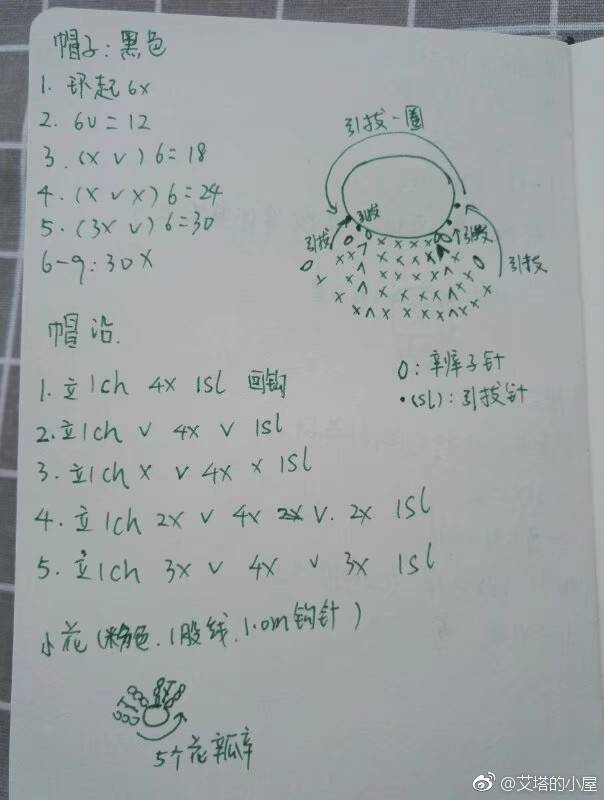 帽子:黑色
1. 环起6x
2. 6v=12
3. (x v) 6=18
4. (x v x) 6=24
5. (3x v) 6=30
6-9: 30x
引拔一圈
引拔
引拔
引拔
引拔
帽沿.
1. 立1ch 4x 1sl 回钩
2. 立1ch v 4x v 1sl
3. 立1ch x v 4x x 1sl
4. 立1ch 2x v 4x v. 2x 1sl
5. 立1ch 3x v 4x v 3x 1sl
0: 辫子针
•(sl): 引拔针
小花(粉色.1股线.1.0m钩针)
5个花瓣
@艾塔的小屋